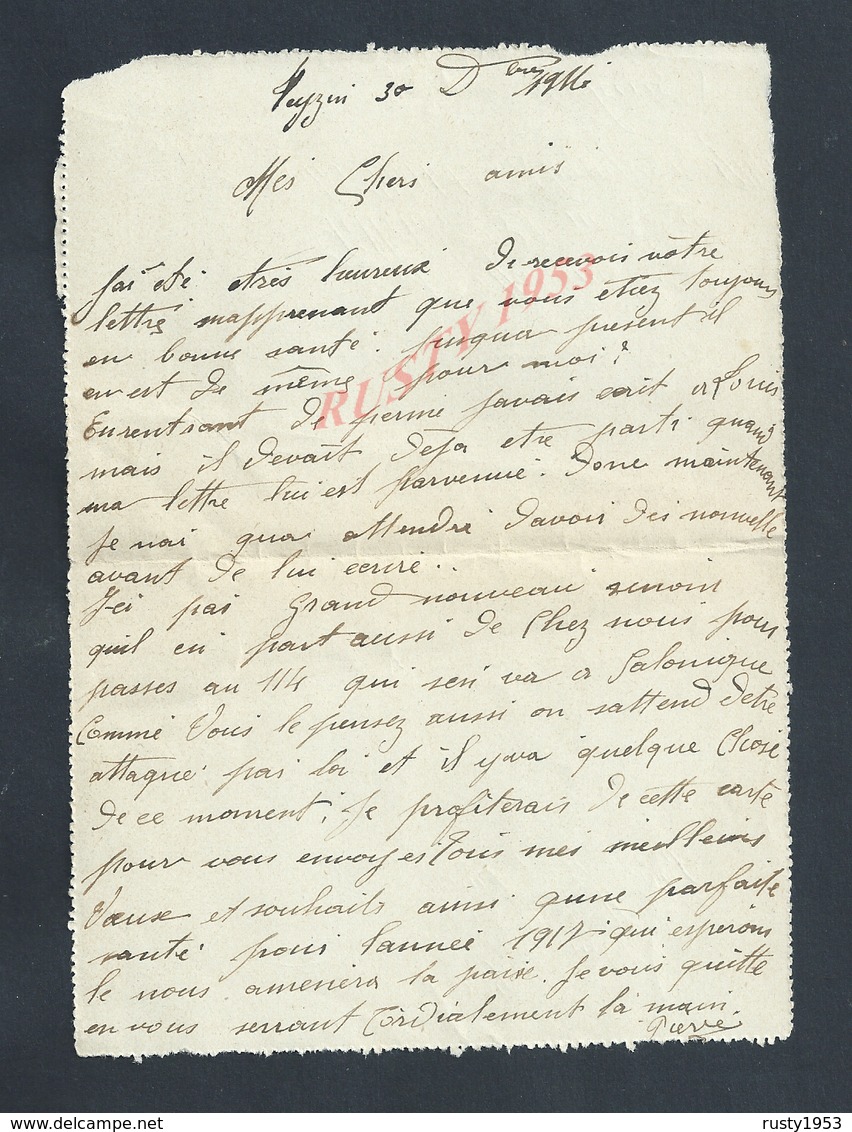 Meyzin 30 Dbre 1916
Mes Chers amis
Jai été etrès heureux de recevois votre
lettre mapprenant que vous etiez toujours
en bonne santé. Jusqua présent il
en est de même pour moi.
En rentrant de perme javais ecrit a Louis
mais il devait deja etre parti quand
ma lettre lui est parvenue. Donc maintenant
je nai qua attendre davois des nouvelle
avant de lui ecrire..
Ici pas grand nouveau sinoin
quil en part aussi de chez nous pour
passes au 114 qui sen va a Salonique
Comme vous le pensez aussi on sattend detre
attaqué par la et il y va quelque chose
de ce moment. Je profiterais de cette carte
pour vous envoyes tous mes meilleurs
vœux et souhaits ainsi quune parfaite
santé pour lannée 1917 qui esperons
le nous amenera la paix. Je vous quitte
en vous serrant cordialement la main.
Pierre
RUSTY 1953
rusty1953